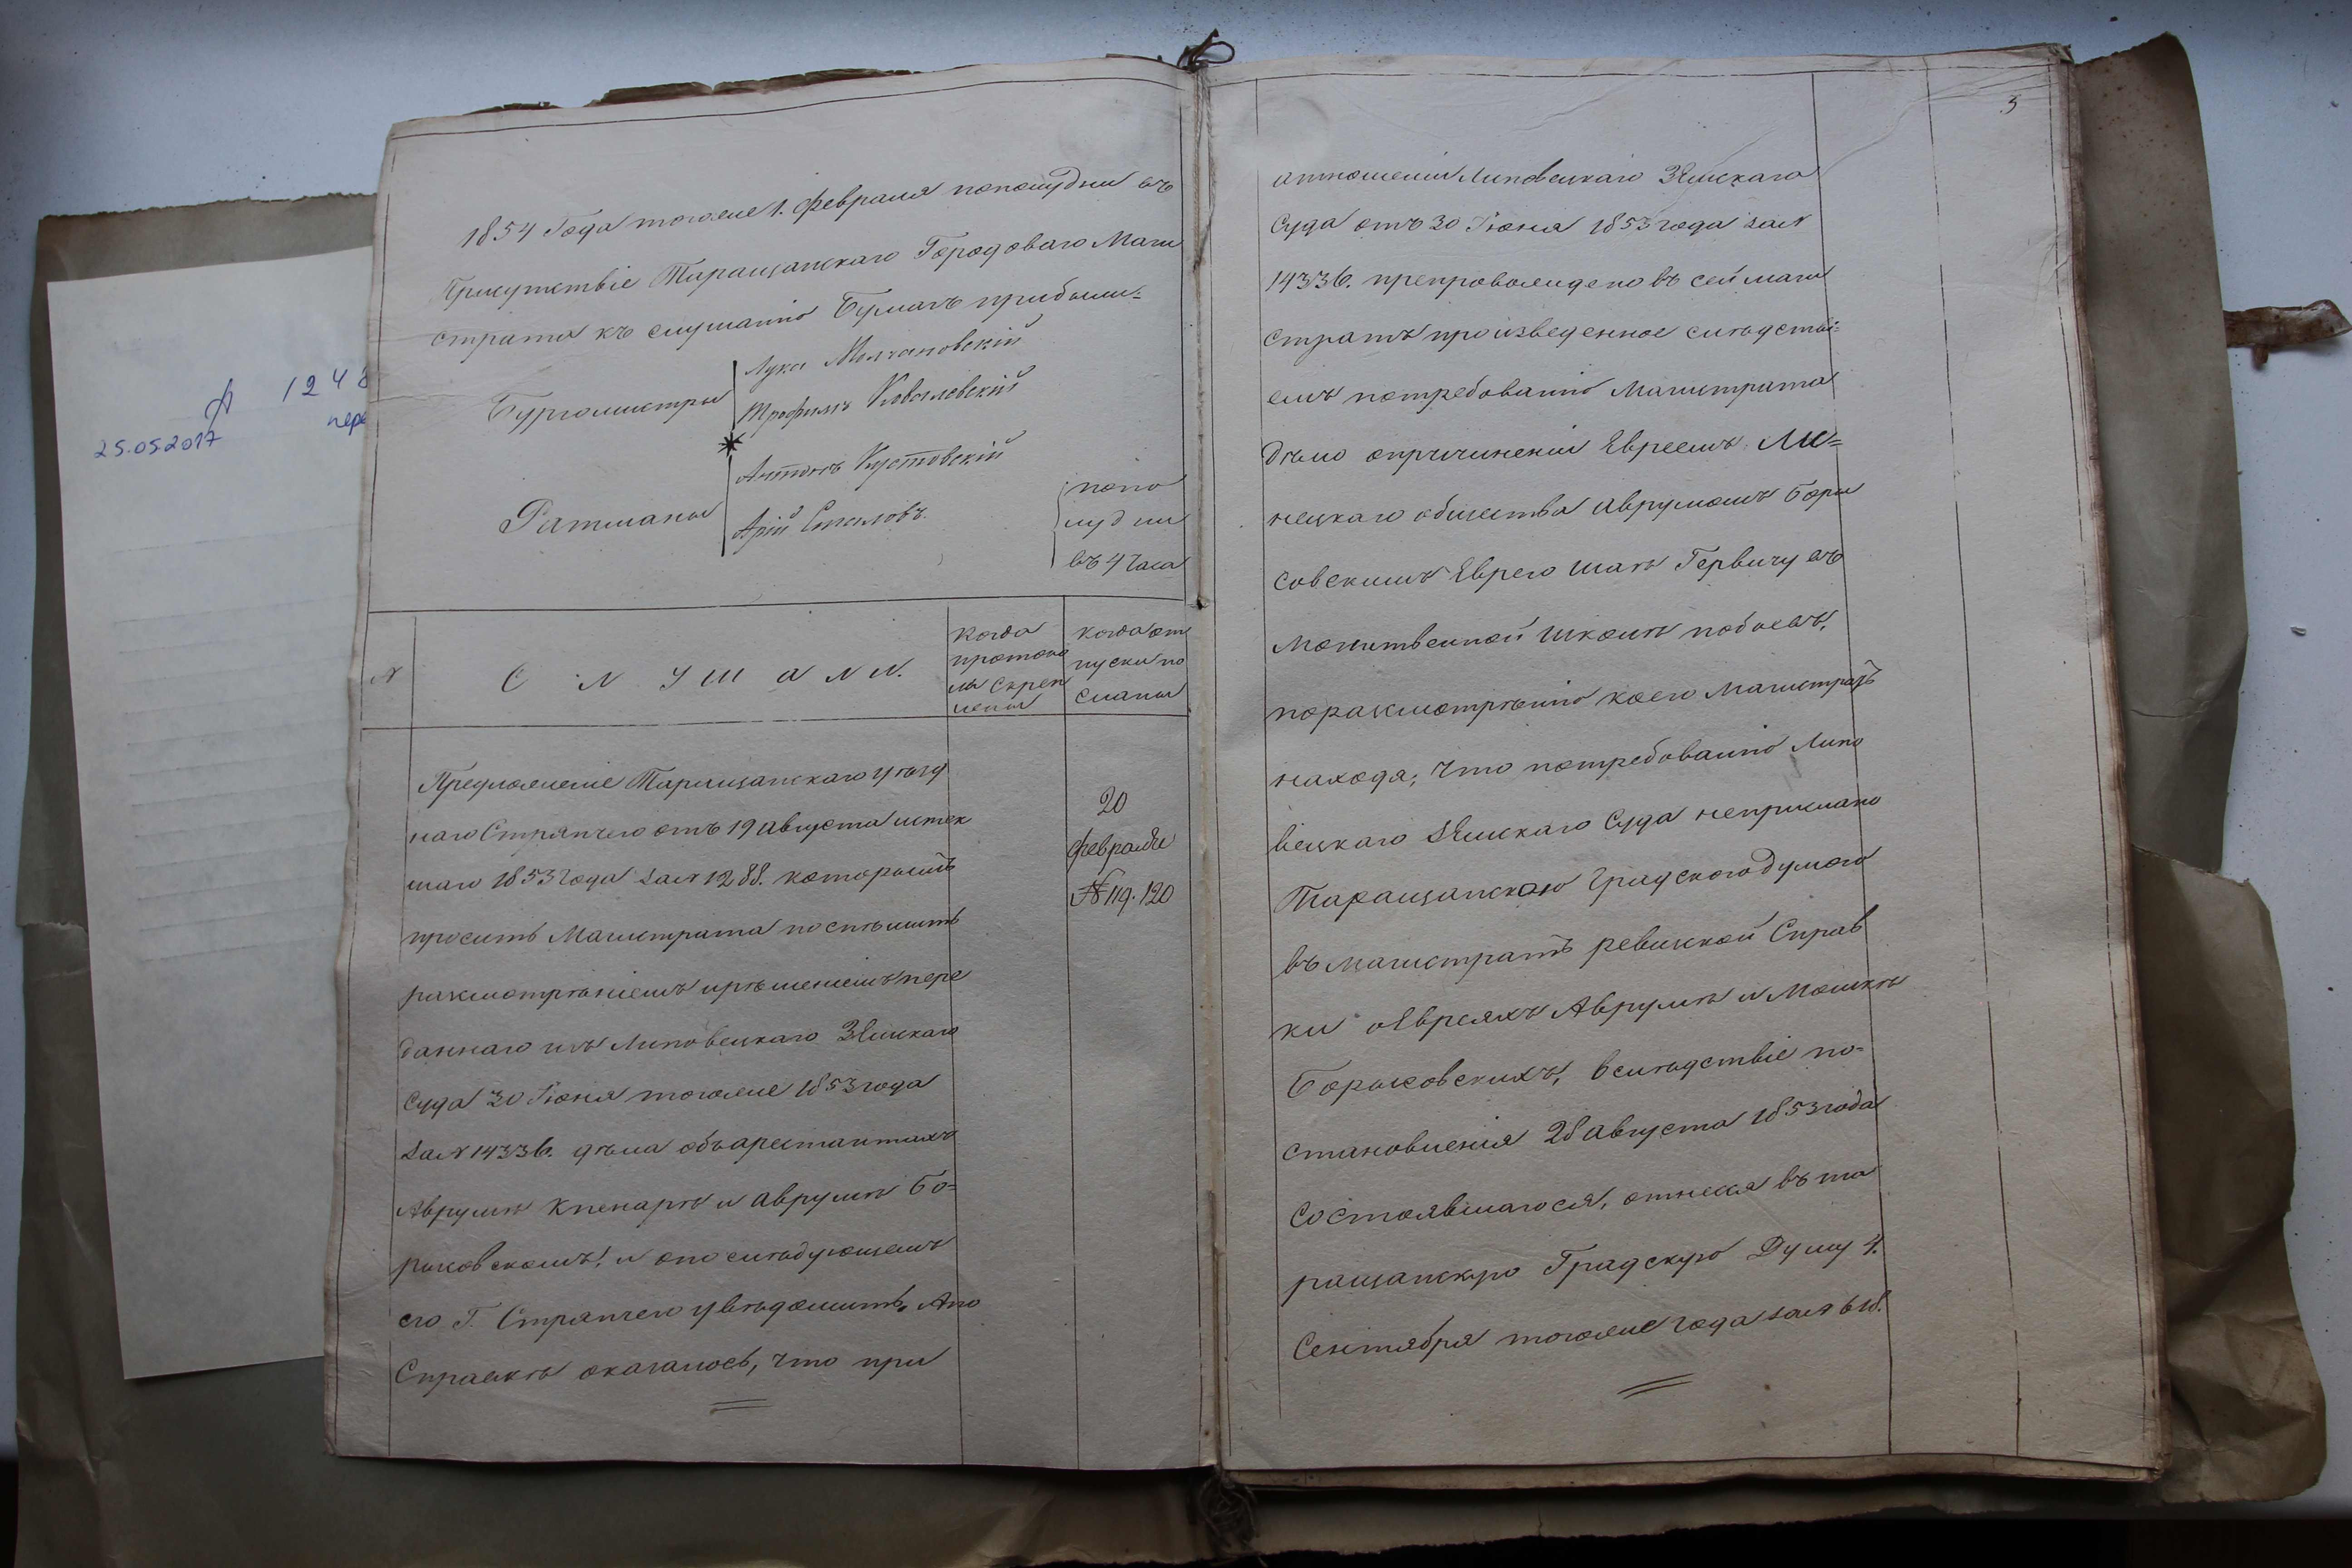 А 1248
пере
25.05.2017
1854 Года тогоже 1. февраля пополудни въ
Присутствіе Таращанскаго Городоваго Маги
страта къ слушанію Бумагъ прибыли=
Бургомистры
Лука Молчановскій
Трофимъ Ковалевскій
Ратманы
Антонъ Кустовскій
Арій Соколовъ.
попо
лудни
въ 4 часа
№
СЛУШАЛИ.
когда
протоко
лы скреп
лены
когда от
пуски по
сланы
Предложеніе Таращанскаго уѣзд
наго Стряпчего отъ 19 августа истек
шаго 1853 года за № 1288. которымъ
проситъ Магистрата поспѣшить
разсмотрѣніемъ и рѣшеніемъ пере
даннаго изъ Липовецкаго Земскаго
Суда 30 Іюня тогоже 1853 года
за № 14336. дѣла объ арестантахъ
Аврумѣ Кненарѣ и Аврумѣ Бо=
рисовскомъ, и о послѣдующемъ
его Г. Стряпчего увѣдомить. А по
Справкѣ оказалось, что при
20
февраля
№ 119. 120
3
отношеніи Липовецкаго Земскаго
Суда отъ 30 Іюня 1853 года за №
14336. препровождено въ сей маги
стратъ произведенное слѣдстві=
емъ по требованію Магистрата
дѣло о причиненіи Евреемъ Ли=
нецкаго общества Аврумомъ Бори
совскимъ Еврею Шаѣ Гервичу въ
молитвенной школѣ побоевъ,
по разсмотрѣнію коего Магистратъ
находя, что по требованію Липо
вецкаго Земскаго Суда неприслано
Таращанскою Градскою думою
въ магистратъ ревизкой Справ
ки о Евреяхъ Аврумѣ и Мошкѣ
Борисовскихъ, вслѣдствіе по=
становленія 28 августа 1853 года
состоявшагося, отнесся въ та
ращанскую Градскую Думу 4.
Сентября тогоже года за № 618.